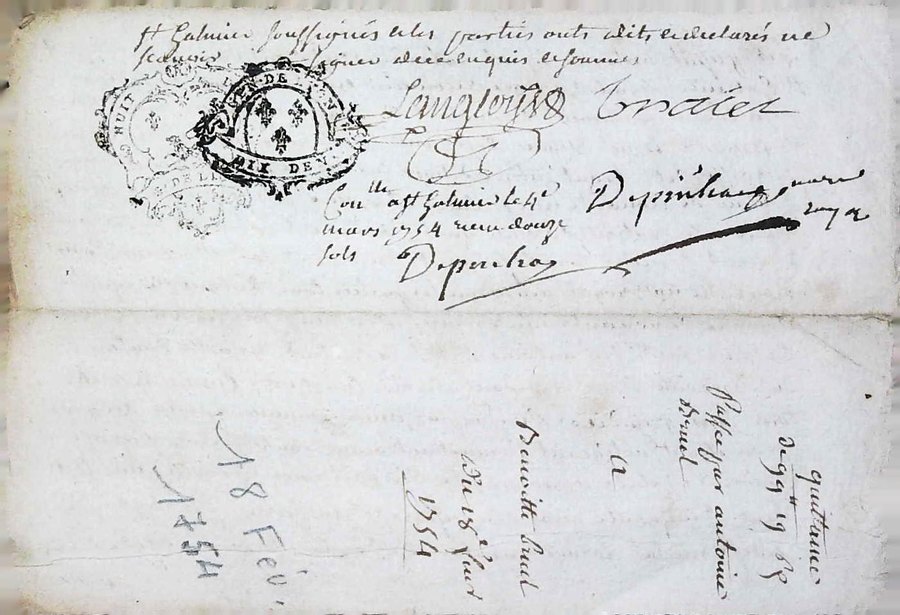 St Galmier soussignés et les parties onts dits et declarés ne
scavoir signer de ce enquis et sommés
HUIT
DIX DEN
Langlois
Conlle a St Galmier le 4e
mars 1754 recu douze
sols
Depinhac
Depinhac
quittance
de 99ll 19s
Passée par antoine
a
Benoitte
Du 18e fever
1754
18 Fév.
1754